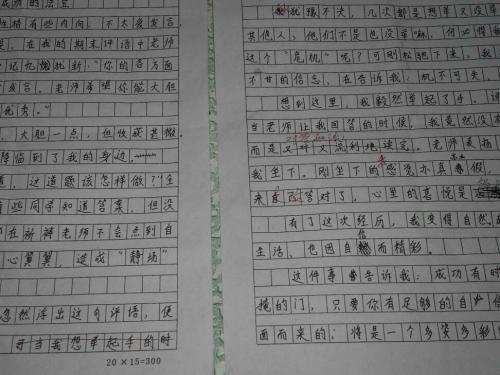 成败的法宝
性格有些内向，不太爱发言
是，在我的期末评语中老师
记忆犹新：“你的各方面
发言。老师希望你能大胆
优秀。”
大胆一点，但收获甚微。
降临到了我的身边
道，这道题该怎样做？”全
有些同学知道答案，但没
都在祈祷老师不会点到自
心翼翼，造成“静场”
忽然浮出这句评语，便
可当我想举起手的时
20×15=300
机不失，几次都是想举又没举
其他人，他们不是也没举嘛，何必
这个“危机”呢？可刚松驰下来，我
不甘的信念，在告诉我：机不可失，
想到这里，我毅然举起了手。
当老师让我回答的时候，我竟然没有
而是又对又流利地读完。老师表扬
我坐下。刚坐下的感觉亦真亦假，
来自己答对了，心里的喜悦是
有了这次经历，我变得自然
生活，也因自信而精彩。
这件事告诉我：成功有时
掩的门，只要你有足够的自信
面而来的，将是一个多姿多彩